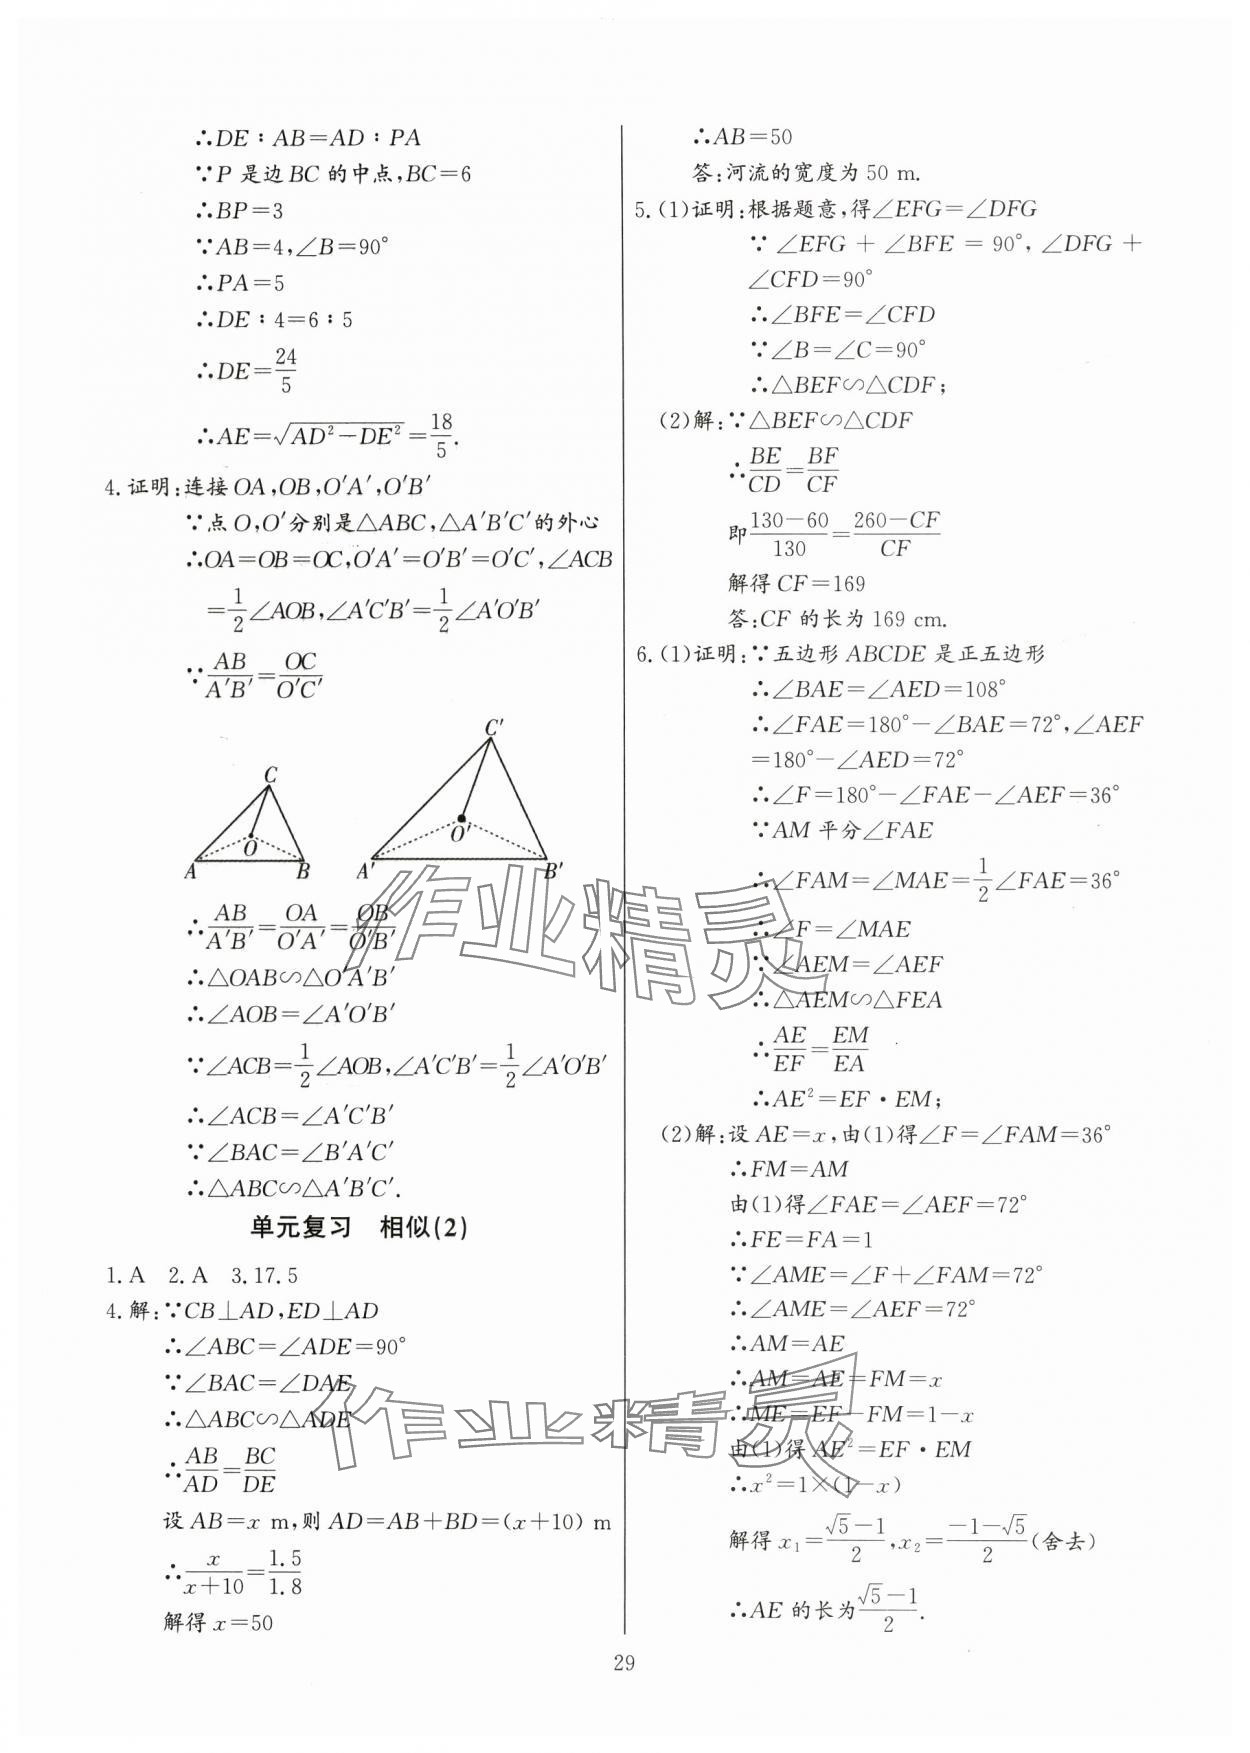 ∴DE∶AB=AD∶PA
∵P 是边 BC 的中点,BC=6
∴BP=3
∵AB=4,∠B=90°
∴PA=5
∴DE∶4=6∶5
∴DE=24/5
∴AE=√(AD²-DE²)=18/5.
4.证明:连接 OA,OB,O′A′,O′B′
∵点 O,O′分别是△ABC,△A′B′C′的外心
∴OA=OB=OC,O′A′=O′B′=O′C′,∠ACB
=1/2∠AOB,∠A′C′B′=1/2∠A′O′B′
∵AB/A′B′=OC/O′C′
C O A B
C′ O′ A′ B′
∴AB/A′B′=OA/O′A′=OB/O′B′
∴△OAB∽△O′A′B′
∴∠AOB=∠A′O′B′
∵∠ACB=1/2∠AOB,∠A′C′B′=1/2∠A′O′B′
∴∠ACB=∠A′C′B′
∵∠BAC=∠B′A′C′
∴△ABC∽△A′B′C′.
单元复习 相似(2)
1.A 2.A 3.17.5
4.解:∵CB⊥AD,ED⊥AD
∴∠ABC=∠ADE=90°
∵∠BAC=∠DAE
∴△ABC∽△ADE
∴AB/AD=BC/DE
设 AB=x m,则 AD=AB+BD=(x+10) m
∴x/(x+10)=1.5/1.8
解得 x=50
∴AB=50
答:河流的宽度为 50 m.
5.(1)证明:根据题意,得∠EFG=∠DFG
∵∠EFG+∠BFE=90°,∠DFG+
∠CFD=90°
∴∠BFE=∠CFD
∵∠B=∠C=90°
∴△BEF∽△CDF;
(2)解:∵△BEF∽△CDF
∴BE/CD=BF/CF
即(130-60)/130=(260-CF)/CF
解得 CF=169
答:CF 的长为 169 cm.
6.(1)证明:∵五边形 ABCDE 是正五边形
∴∠BAE=∠AED=108°
∴∠FAE=180°-∠BAE=72°,∠AEF
=180°-∠AED=72°
∴∠F=180°-∠FAE-∠AEF=36°
∵AM 平分∠FAE
∴∠FAM=∠MAE=1/2∠FAE=36°
∴∠F=∠MAE
∵∠AEM=∠AEF
∴△AEM∽△FEA
∴AE/EF=EM/EA
∴AE²=EF·EM;
(2)解:设 AE=x,由(1)得∠F=∠FAM=36°
∴FM=AM
由(1)得∠FAE=∠AEF=72°
∴FE=FA=1
∵∠AME=∠F+∠FAM=72°
∴∠AME=∠AEF=72°
∴AM=AE
∴AM=AE=FM=x
∴ME=EF-FM=1-x
由(1)得 AE²=EF·EM
∴x²=1×(1-x)
解得 x₁=(√5-1)/2,x₂=(-1-√5)/2(舍去)
∴AE 的长为(√5-1)/2.
29
作业精灵
作业精灵